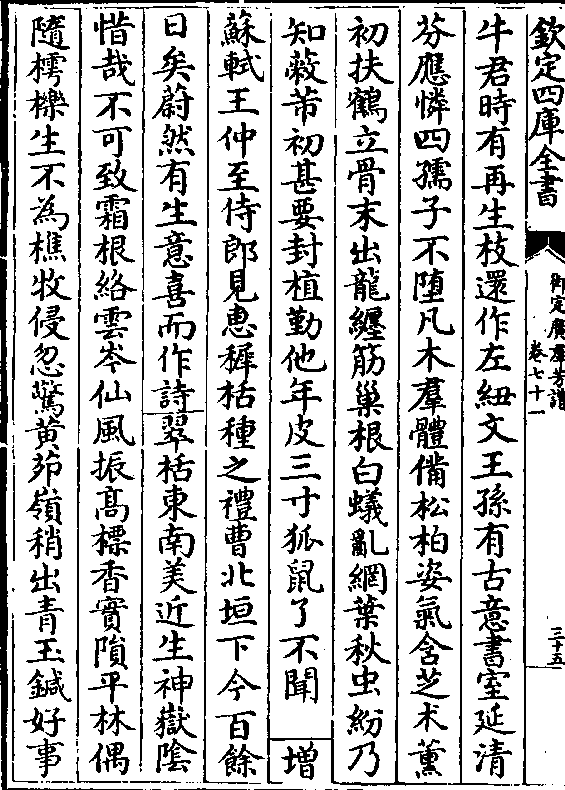 欽定四庫全書
御定廣羣芳譜
卷七十一
三十五
牛君時有再生枝還作左紐文王孫有古意書室延清
芬應憐四孺子不墮凡木羣體備松柏姿氣含芝术薰
初扶鶴立骨末出龍纏筋巢根白蟻亂網葉秋虫紛乃
知蔽芾初甚要封植勤他年皮三寸狐鼠了不聞 增
蘇軾王仲至侍郎見惠穉栝種之禮曹北垣下今百餘
日矣蔚然有生意喜而作詩翠栝東南美近生神嶽陰
惜哉不可致霜根絡雲岑仙風振高標香實隕平林偶
隨樗櫟生不為樵牧侵忽驚黄茆嶺稍出青玉鍼好事